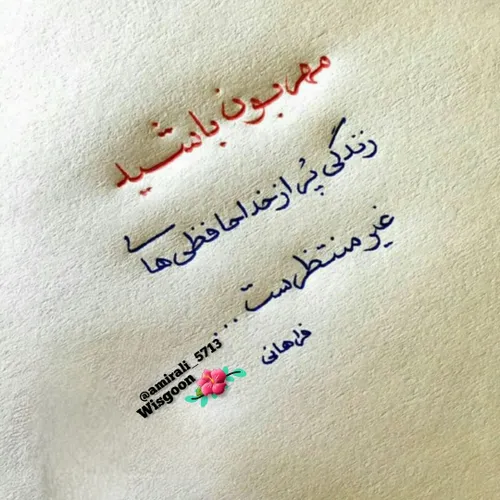 مهربون باشید
زندگی پُر از خداحافظی‌های
غیرمنتظرست...
فراهانی
@amirali_5713
Wisgoon